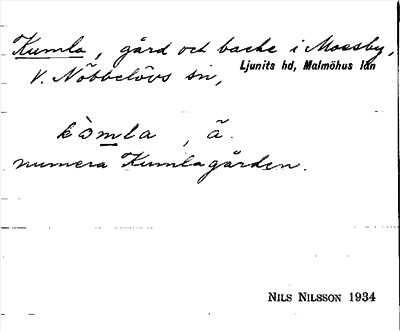 Kumla, gård och backe i Mossby,
V. Nöbbelövs sn, Ljunits hd, Malmöhus län
kòmla, ä.
numera Kumlagården.
NILS NILSSON 1934